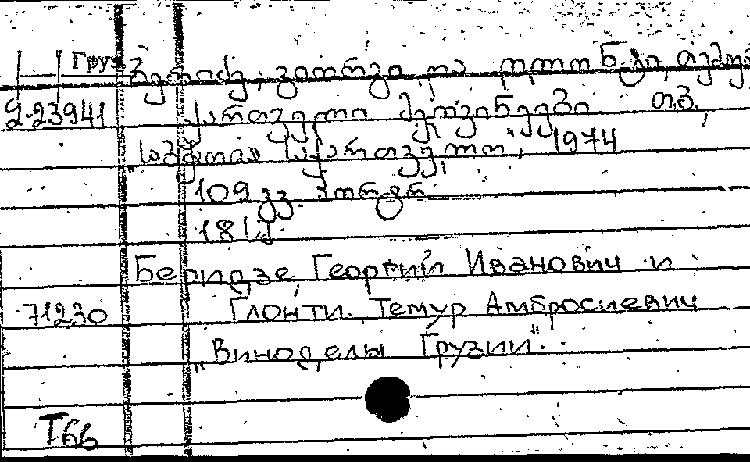 Груз
ბერიძე, გიორგი და ღლონტი, თემურ
2-23941 ქართველი მეღვინეები თბ.,
"საბჭოთა საქართველო", 1974
109 გვ. პორტრ.
18 სმ
Беридзе, Георгий Иванович и
71230 Глонти. Темур Амбросиевич
"Виноделы Грузии".
T66